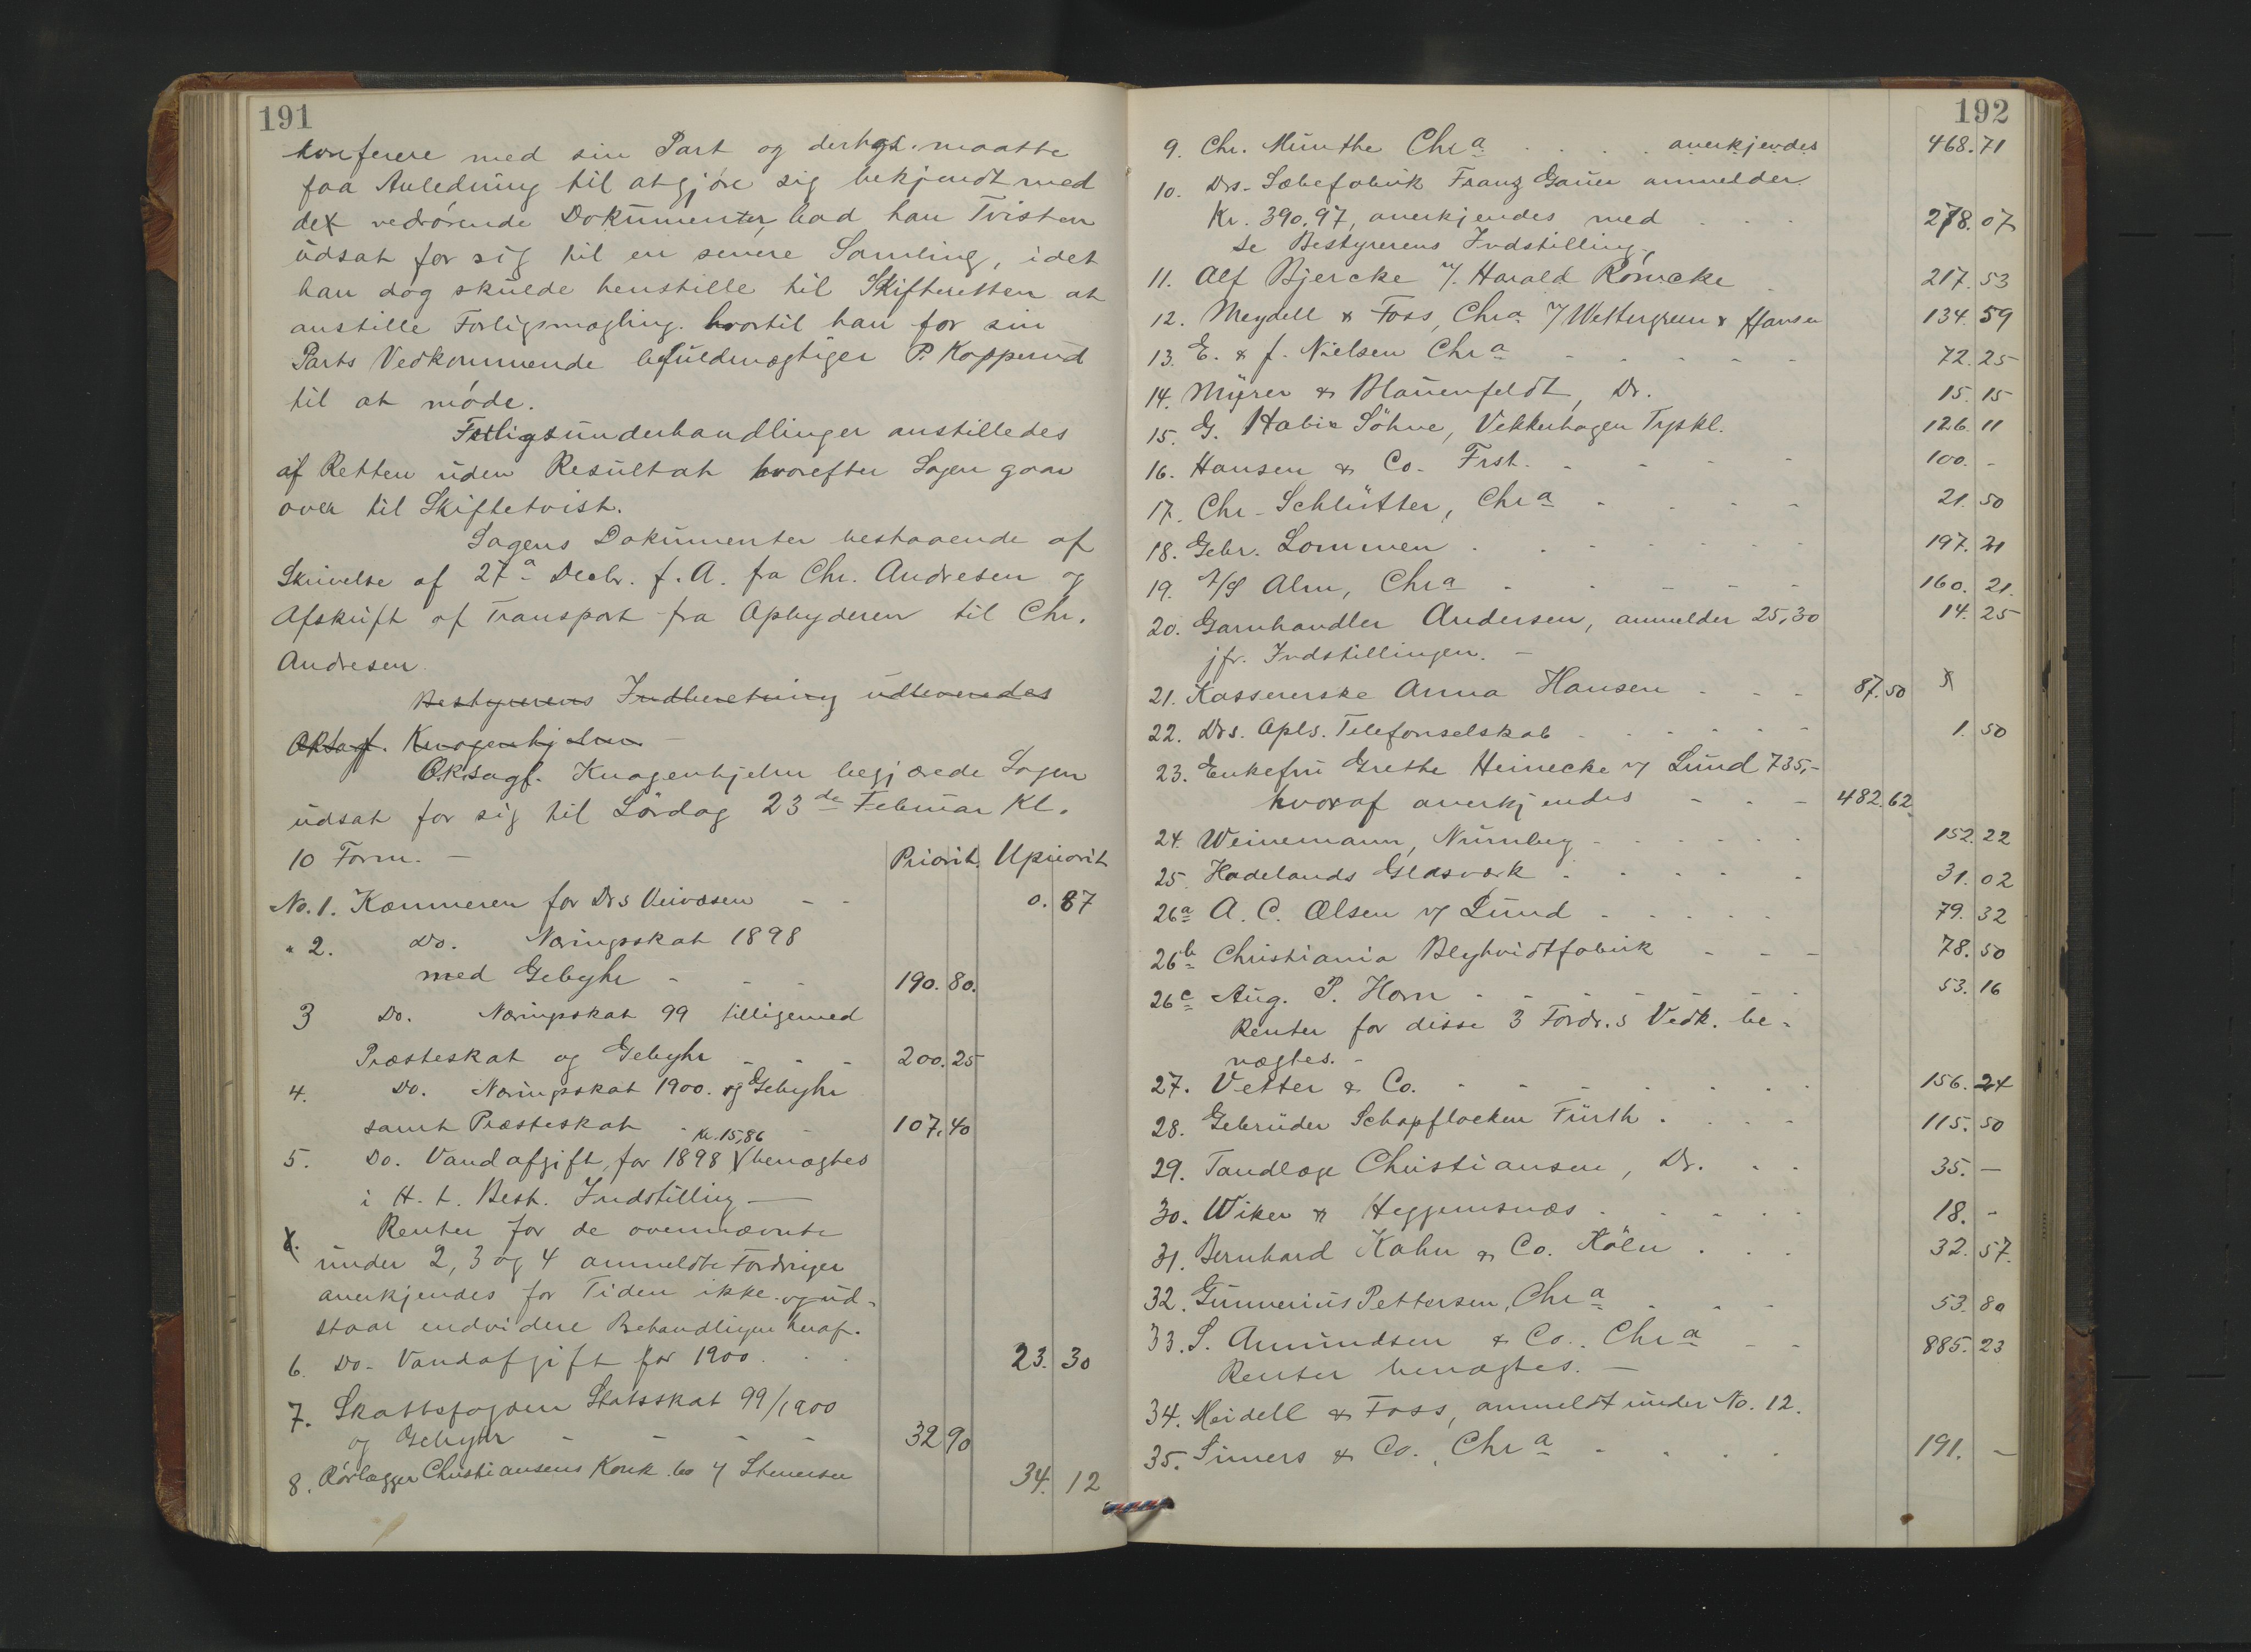 191
konferere med sin Part og derhos maatte
faa Anledning til at gjøre sig bekjendt med
de vedrørende Dokumenter, bad han Tvisten
udsat for sig til en senere Samling, idet
han dog skulde henstille til Skifteretten at
anstille Forligsmægling hvortil han for sin
Parts Vedkommende befuldmægtiger P. Kopperud
til at møde.
Forligsunderhandlinger anstilledes
af Retten uden Resultat hvorefter Sagen gaar
over til Skiftetvist.
Sagens Dokumenter bestaaende af
Skrivelse af 27a Decbr. f. A. fra Chr. Andresen og
Afskrift af Transport fra Opbyderen til Chr.
Andresen.
Bestyrerens Indberetning udleveredes
ORsagf. Knagenhjelm
O.Rsagf. Knagenhjelm begjærede Sagen
udsat for sig til Lørdag 23de Februar Kl.
10 Form. — Priorit. Upriorit
No. 1. Kæmneren for Drs Veivæsen - - 0. 87
" 2. Do. Næringsskat 1898
med Gebyhr - - - 190. 80.
3 Do. Næringsskat 99 tilligemed
Præsteskat og Gebyhr - - - 200. 25
4. Do. Næringsskat 1900. og Gebyhr
samt Præsteskat - - 107. 40
Kr. 15,86
5. Do. Vandafgift, for 1898 benægtes
i H. t. Best. Indstilling —
X. Renter for de ovennævnte
under 2, 3 og 4 anmeldte Fordringer
anerkjendes for Tiden ikke og ud-
staar endvidere Behandlingen heraf.
6. Do. Vandafgift for 1900 . . . 23. 30
7. Skattefogden Statsskat 99/1900
og Gebyhr - - - - 32 90
8. Rørlægger Christiansens Konk. bo v/ Stenersen 34. 12
192
9. Chr. Münthe Chra . . . . anerkjendes 468. 71
10. Drs. Sæbefabrik Franz Gauer anmelder
Kr. 390,97, anerkjendes med . . . 278. 07
se Bestyrerens Indstilling.
11. Alf Bjercke v/ Harald Römcke . 217. 53
12. Meydell & Foss, Chra v/ Wettergreen & Hansen 134. 59
13. E. & J. Nielsen Chra - - - - - 72. 25
14. Myrer & Blauenfeldt, Dr. 15. 15
15. G. Habie Söhne, Vekkerhagen Tyskl. 126. 11
16. Hansen & Co. Frst. - - - - 100. -
17. Chr. Schlütter, Chra - - - - 21. 50
18. Gebr. Lommen . . - - - - - 197. 21
19. A/S Alm, Chra - - - - - 160. 21.
20. Garnhandler Andersen, anmelder 25,30 14. 25
jfr. Indstillingen. —
21. Kassererske Anna Hansen - - - 87. 50 X
22. Drs. Opls. Telefonselskab - - - - - 1. 50
23. Enkefru Grethe Heinecke v/ Lund 735,-
hvoraf anerkjendes - - - 482. 62
24. Weinemann, Nürnberg - - - - - 152. 22
25. Hadelands Glasværk . - - - - 31. 02
26a A. C. Olsen v/ Lund - - - - - 79. 32
26b Christiania Blyhvidtfabrik - - - 78. 50
26c Aug. P. Horn - - - - - - 53. 16
Renter for disse 3 Fordr.s Vedk. be-
nægtes. -
27. Vetter & Co. - - - - - - 156. 24
28. Gebrüder Schopflocken Fürth . . . - 115. 50
29. Tandlæge Christiansen, Dr. . . 35. —
30. Wiker & Heggemsnæs . . . . . 18. -
31. Bernhard Kahn & Co. Köln . . . 32. 57.
32. Gunnerius Pettersen, Chra . - - 53. 80
33. S. Amundsen & Co. Chra - - 885. 23
Renter benægtes. —
34. Meidell & Foss, anmeldt under No. 12.
35. Simers & Co., Chra - - - - 191. —